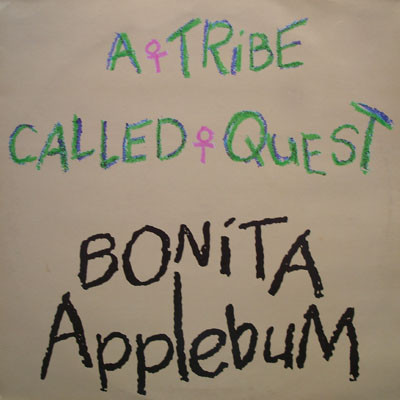 A TRiBE
CALLED QUEST
BONiTA
ApplebuM